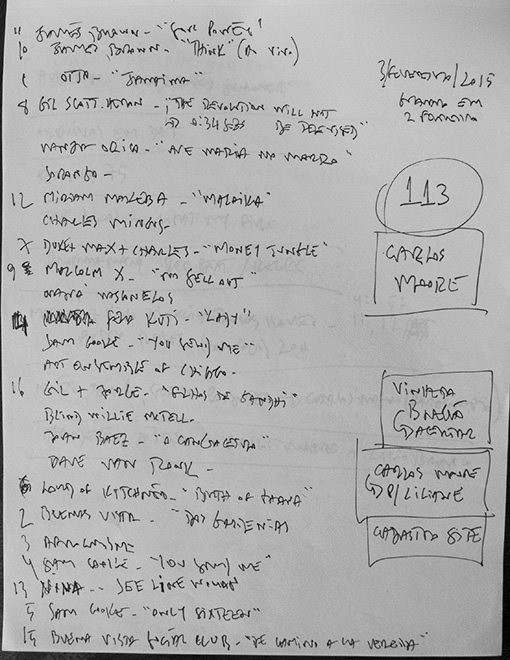 11 JAMES BROWN - "SOUL POWER"
10 JAMES BROWN - "THINK" (AO VIVO)
1 OTTO - "JANAÍNA"
8 GIL SCOTT-HERON - "THE REVOLUTION WILL NOT
BE TELEVISED"
"AVE MARIA NO MORRO"
12 MIRIAM MAKEBA - "MALAIKA"
CHARLES MINGUS -
7 DUKE + MAX + CHARLES - "MONEY JUNGLE"
9 MALCOLM X - "NO SELL OUT"
NANÁ VASCONCELOS
14 FELA KUTI - "LADY"
SAM COOKE - "YOU SEND ME"
ART ENSEMBLE OF CHICAGO -
16 GIL + JORGE - "FILHOS DE GANDHI"
BLIND WILLIE MCTELL -
JOAN BAEZ - "O CANGACEIRO"
DAVE VAN RONK -
6 LORD KITCHENER - "BIRTH OF GHANA"
2 BUENA VISTA - "DOS GARDENIAS"
3
4 SAM COOKE - "YOU SEND ME"
13 NINA - SEE LINE WOMAN
5 SAM COOKE - "ONLY SIXTEEN"
15 BUENA VISTA SOCIAL CLUB - "DE CAMINO A LA VEREDA"
3/FEVEREIRO/2015
GRAVADO EM
2
113
CARLOS
MOORE
VINHETA
CARLOS MOORE
P/ LILIANE
CADASTRO SITE